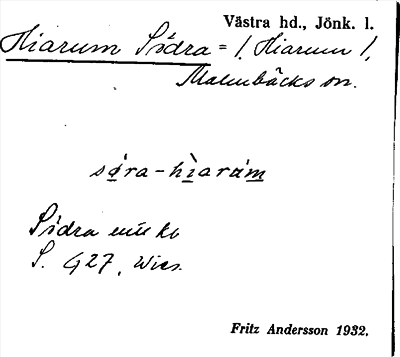 Västra hd., Jönk. l.
Hiarum Södra = /. Hiarum /,
Malmbäcks sn.
sǿ̱ra-hì̱arám̱
Södra
S. G27, Wies.
Fritz Andersson 1932.